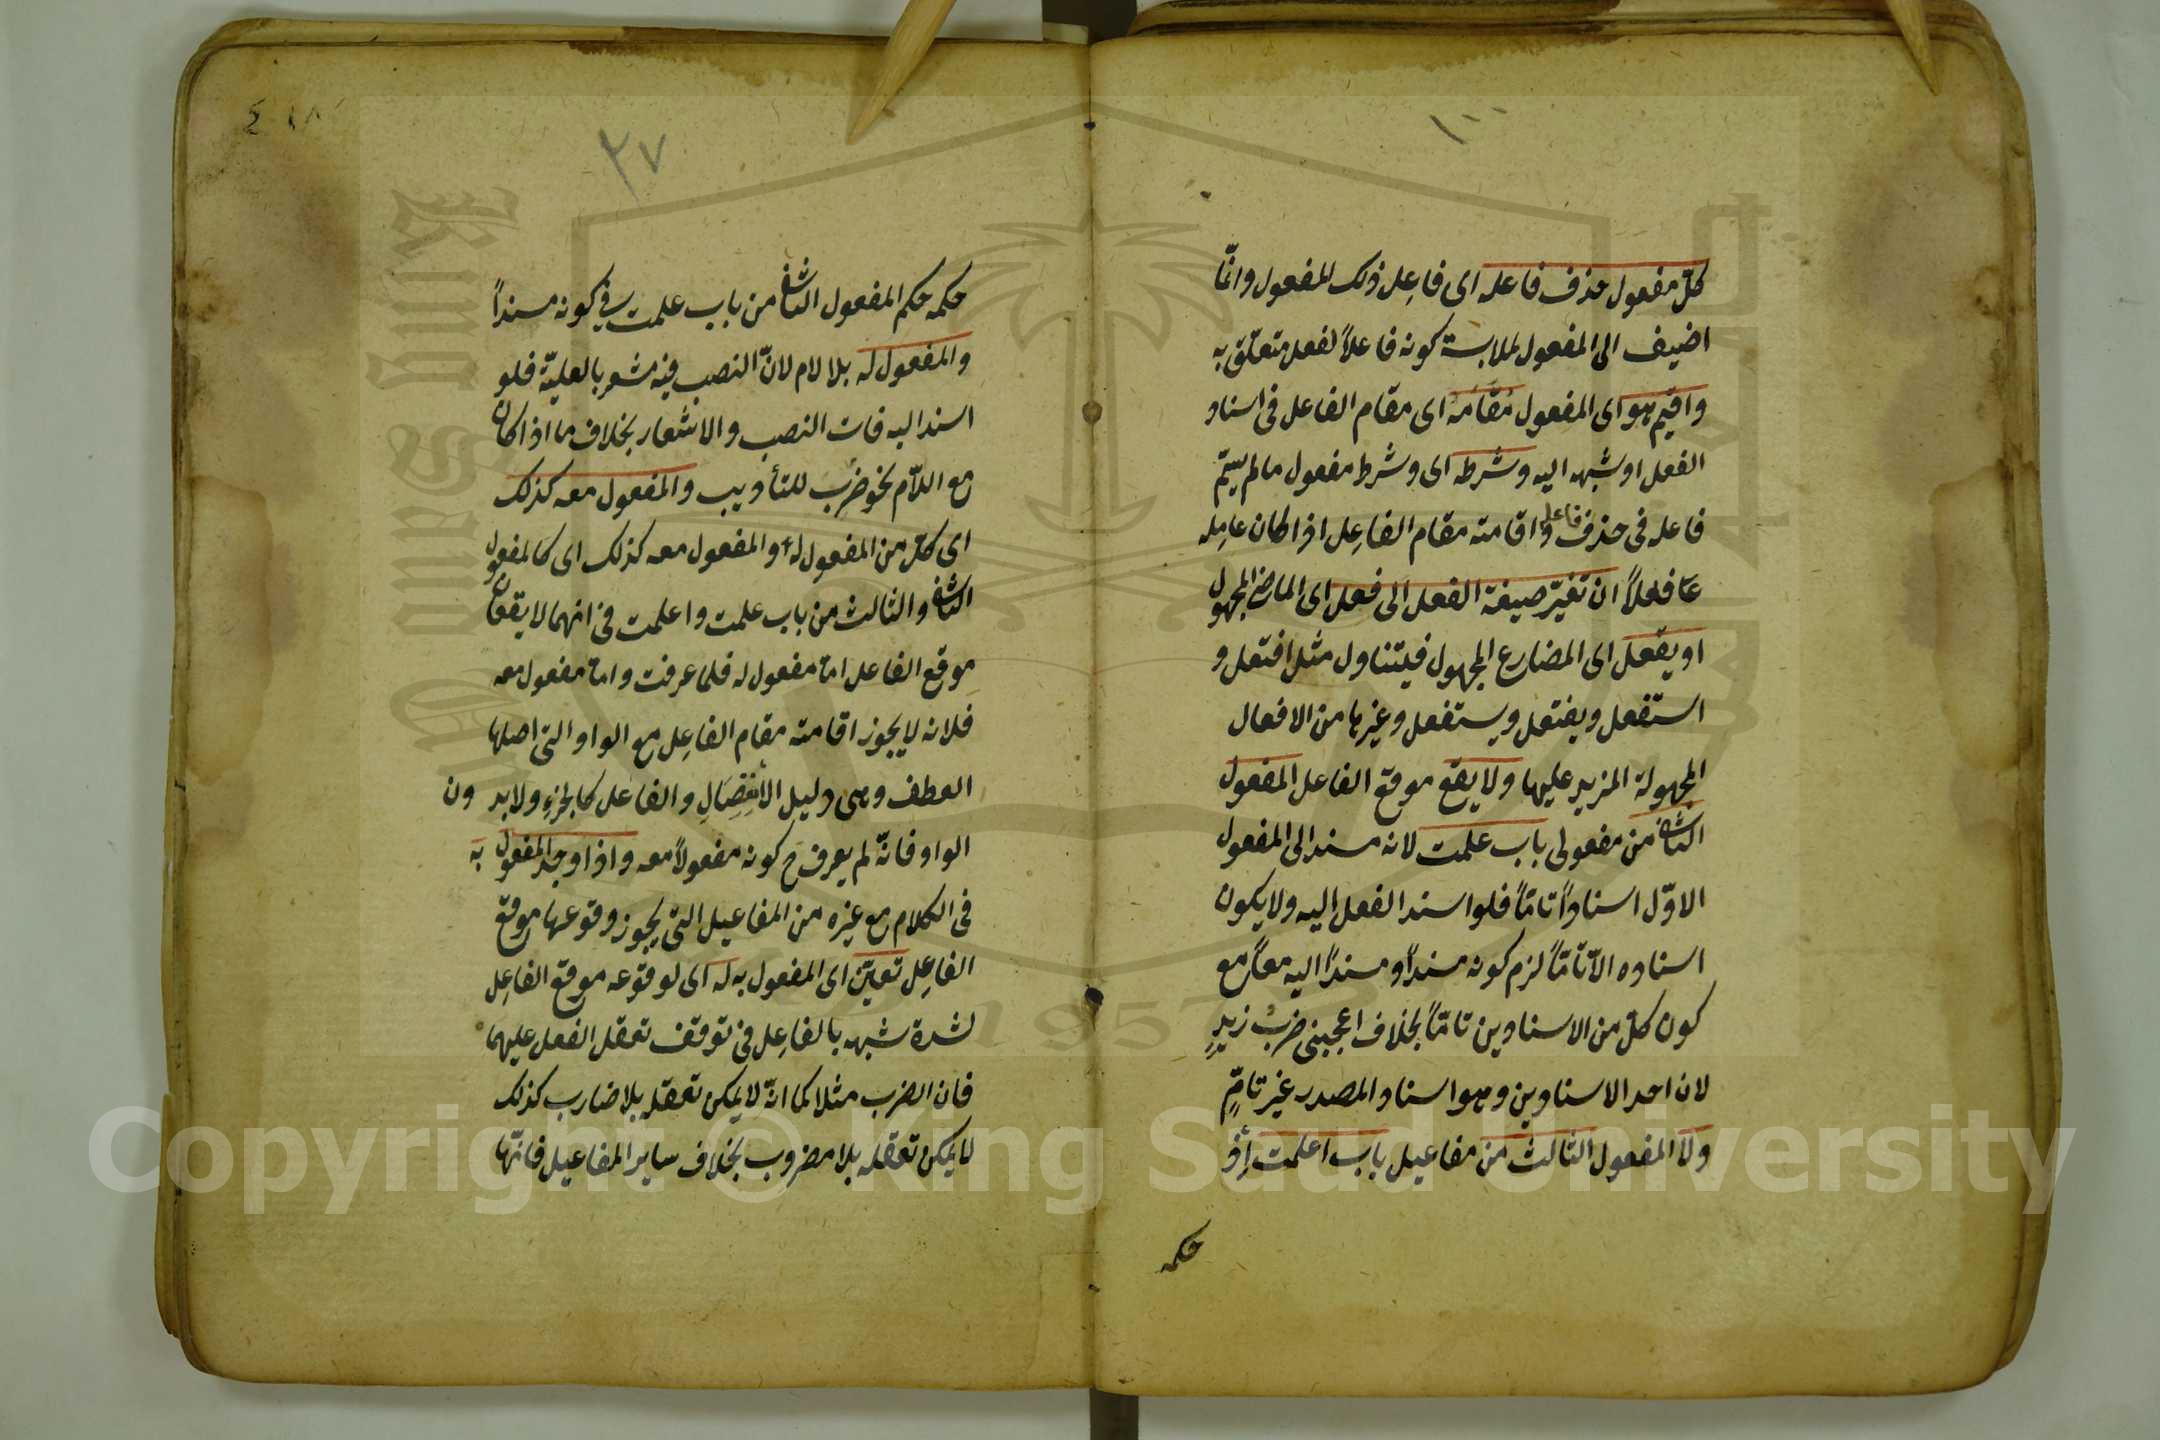 ١٠٠
كلّ مفعول حذف فاعله اى فاعِل ذلك المفعول وانّما
اضيف الى المفعول لملابسة كونه فاعلاً لفعل متعلّق به
واقيم هو اى المفعول مُقَامَهُ اى مقام الفاعل فى اسناد
الفعل او شبهه اليه وشرطه اى وشرط مفعول مالم يسمّ
فاعله فى حذف فاعله واقامته مقام الفاعِل اذا كان عامِله
فعلاً ان تغيّر صيغة الفعل الى فعل اى الماضى المجهول
او يفعل اى المضارع المجهول فيتناول مثل افتعل و
استفعل ويفتعل ويستفعل وغيرها من الافعال
المجهولة المزيد عليها ولا يقع موقع الفاعل المفعول
الثانى من مفعولى باب علمت لانه مسند الى المفعول
الاوّل اسناداً تامّاً فلو اسند الفعل اليه ولا يكون
اسناده الاّ تامّاً لزم كونه مسنداً ومسنداً اليه معاً مع
كون كلّ من الاسنادين تامّاً بخلاف اعجبنى ضربُ زيدٍ
لان احد الاسنادين وهو اسناد المصدر غير تامّ
ولا المفعول الثالث من مفاعيل باب اعلمت إذ
حكمه
٤١٨
٣٧
حكمه حكم المفعول الثانى من باب علمت فى كونه مسنداً
والمفعول له بلا لام لانّ النصب فيه مشعر بالعليّة فلو
اسند اليه فات النصب والاشعار بخلاف ما اذا كان
مع اللاّم نحو ضُرِبَ للتأديب والمفعول معه كذلك
اى كلّ من المفعول له والمفعول معه كذلك اى كالمفعول
الثانى والثالث من باب علمت واعلمت فى انهما لا يقعان
موقع الفاعل اما مفعول له فلما عرفت واما مفعول معه
فلانه لا يجوز اقامته مقام الفاعِل مع الواو التى اصلها
العطف وهى دليل الاِنْفِصَالِ والفاعل كالجزءِ ولا بدون
الواو فانّه لم يعرف ح كونه مفعولاً معه واذا وجد المفعول به
فى الكلام مع غيره من المفاعيل التى يجوز وقوعها موقع
الفاعِل تعيّن اى المفعول به له اى لوقوعه موقع الفاعِل
لشدة شبهه بالفاعِل فى توقف تعقل الفعل عليهما
فان الضرب مثلا كما انّه لا يمكن تعقله بلا ضارب كذلك
لا يمكن تعقله بلا مضروب بخلاف ساير المفاعيل فانّها
Copyright © King Saud University
1957